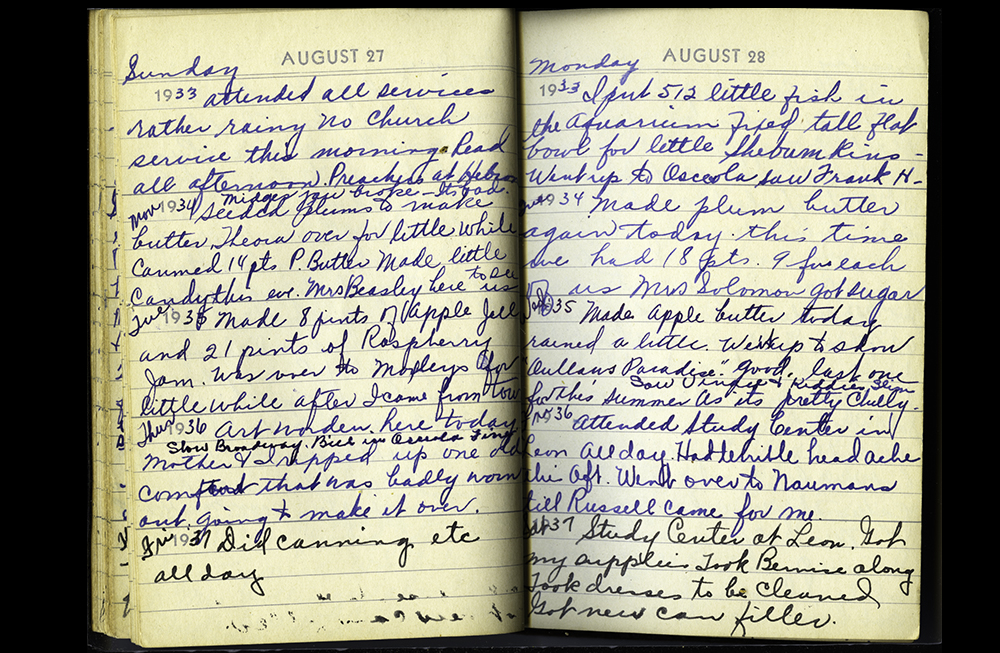 AUGUST 27
Sunday
1933 attended all services
rather rainy no Church
service this morning. Read
all afternoon. Preachers at
Midges jaw broke - Its bad.
Mon 1934 Seeded plums to make
butter. Theora over for little while
Canned 14 pts P. Butter Made little
Candy this eve. Mrs Beasley here to see us
Tue 1935 Made 8 pints of Apple Jell
and 21 pints of Raspberry
Jam. Was over to Mopleys for
little while after I came from town
Thur 1936 Art worden here today
Show Broadway Bill in Osceola Fine
Mother & I ripped up one old
comfort that was badly worn
out. going to make it over.
Fri 1937 Did canning etc
all day
AUGUST 28
Monday
1933 I put 512 little fish in
the Aquarium Fixed tall flat
bowl for little Shebumkins -
Went up to Osceola saw Frank H-
1934 Made plum butter
again today. this time
we had 18 pts. 9 for each
of us Mrs Solomon got sugar
1935 Made Apple butter today
rained a little. Went up to show
"Outlaws Paradise." Good. last one
Saw Vingie & Kiddies, Slim
for this summer As its pretty Chilly.
Fri 36 Attended Study Center in
Leon all day. Had terrible head ache
this Aft. Went over to Naumans
till Russell came for me.
Sat 37 Study Center at Leon. Got
my supplies Took Bernise along
Took dresses to be cleaned
Got new can filler.